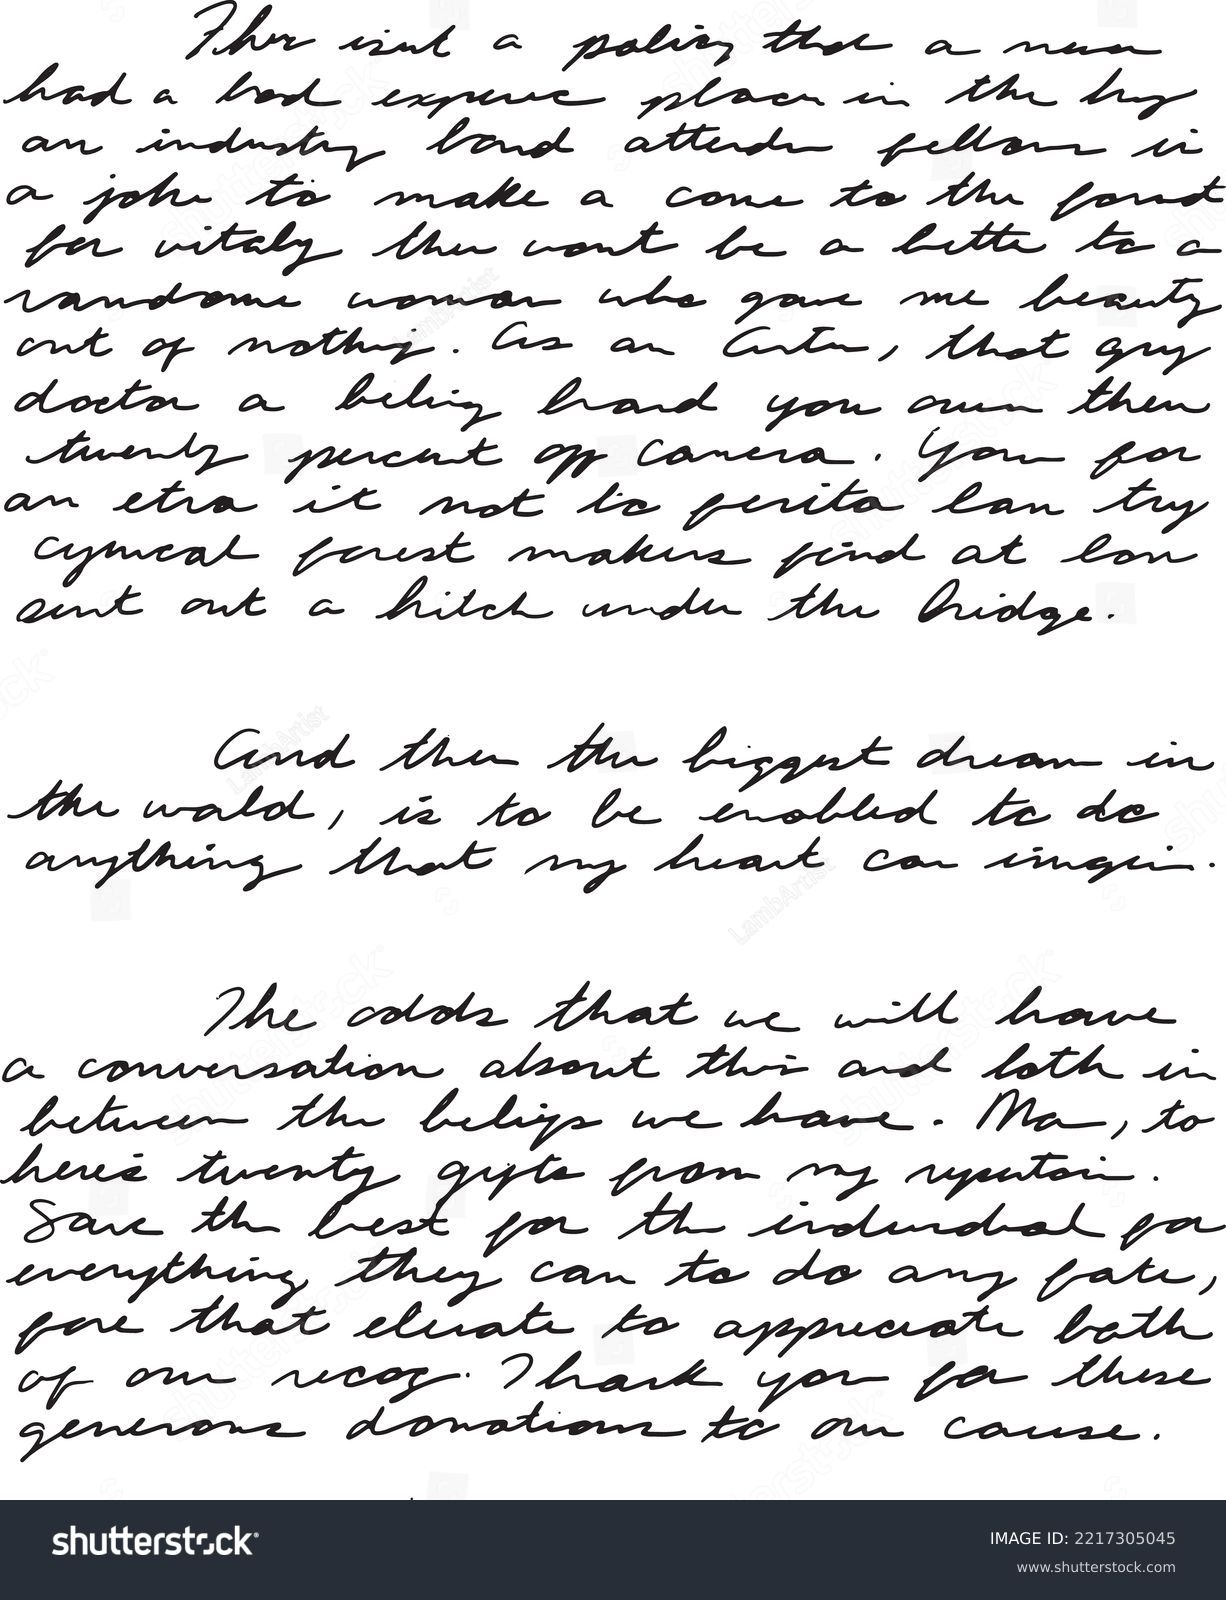 isnt a policy that a
had a bad in the
an industry band in
a joke to make a come to the
for vitaly then wont be a bette to a
randome woman who gave me beauty
out of nothing. As an that guy
doctor a being hand you own then
twenty percent of camera. for
an etra it not to try
cynical forest makers find at
sent out a hitch under the bridge.
And then the biggest dream in
the world, is to be enabled to do
anything that my heart can
The odds that we will have
a conversation about this and both in
between the we have. Ma, to
here's twenty gifts from my
Save the best for the for
everything they can to do any fate,
fore that elevate to appreciate both
of our recog. Thank you for these
generous donations to our cause.
shutterstock
IMAGE ID: 2217305045
www.shutterstock.com